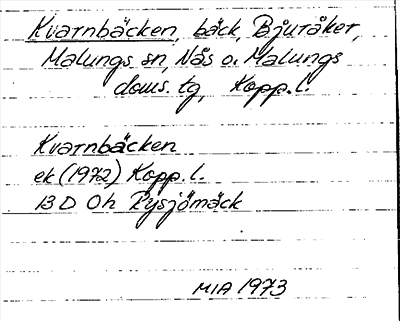 Kvarnbäcken, bäck, Bjuråker,
Malungs sn, Nås o. Malungs
doms. tg, Kopp. l.
Kvarnbäcken
ek (1972) Kopp. l.
13 D 0h Rysjömäck
MIA 1973